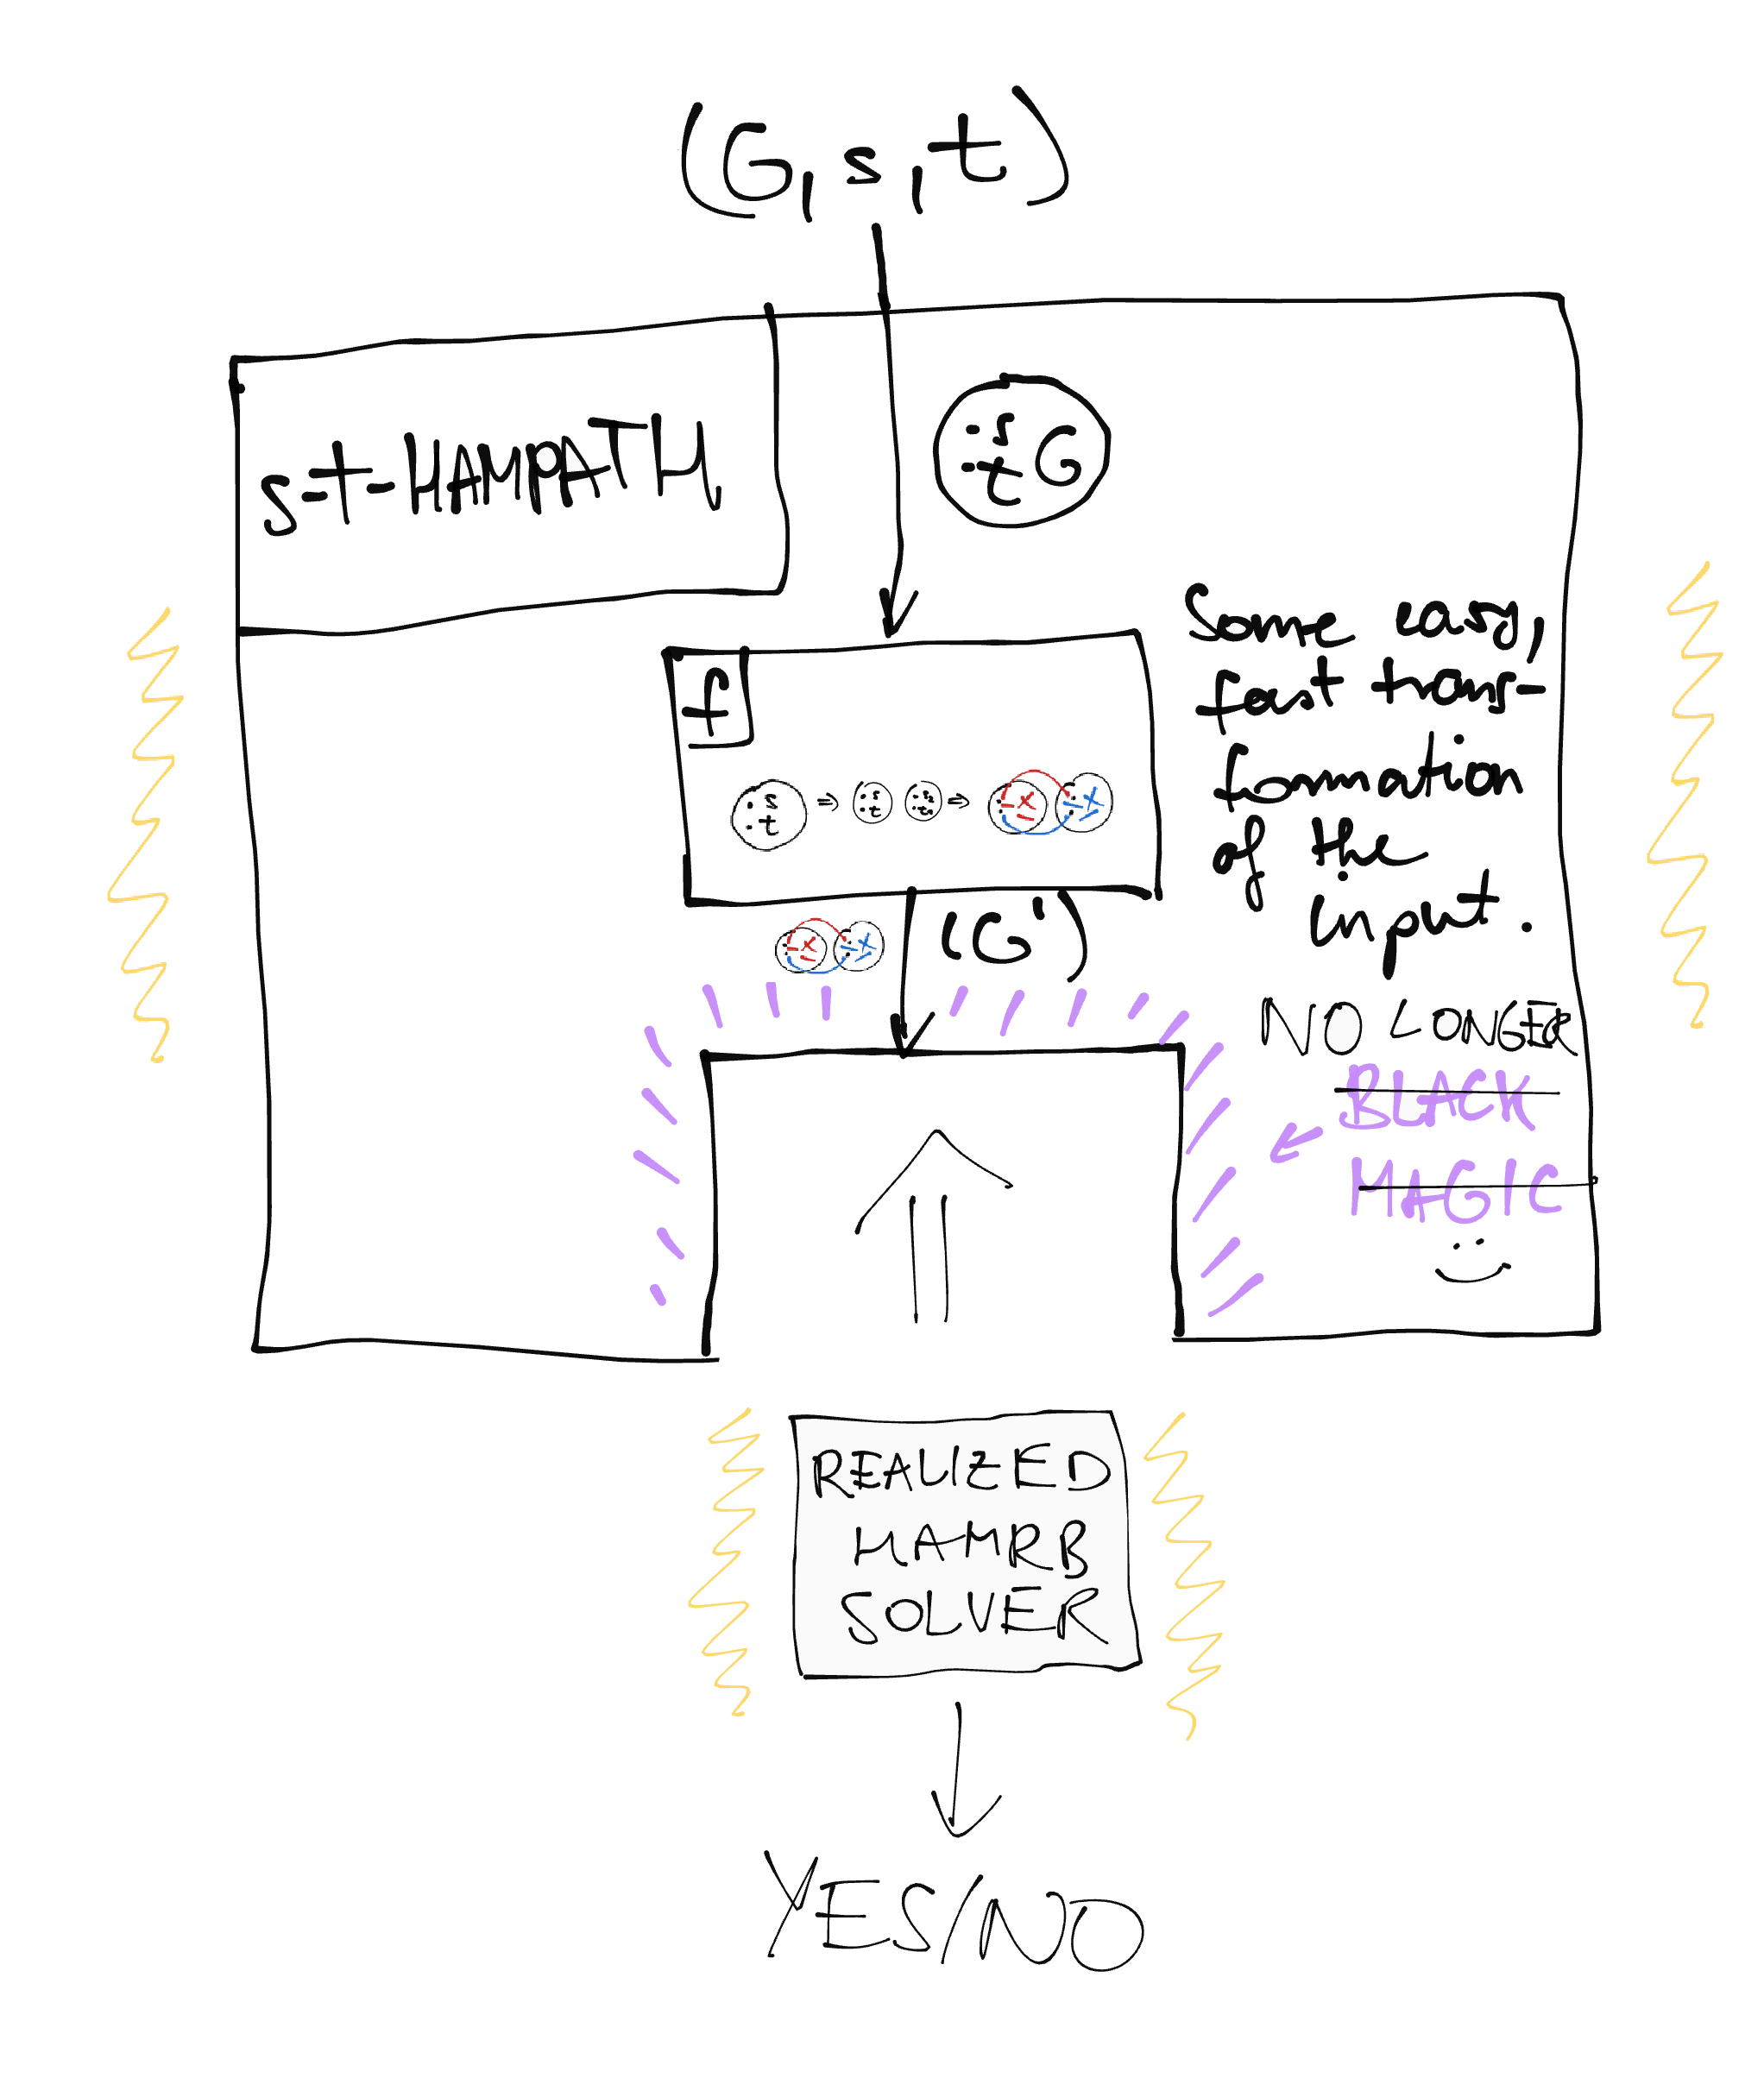 (G,s,t)
s-t-HAMPATH
s
t G
Some easy,
fast trans-
formation
of the
input.
f
s
t
⇒
s
t
⇒
(G')
NO LONGER
BLACK
MAGIC
REALIZED
HAMRB
SOLVER
YES/NO